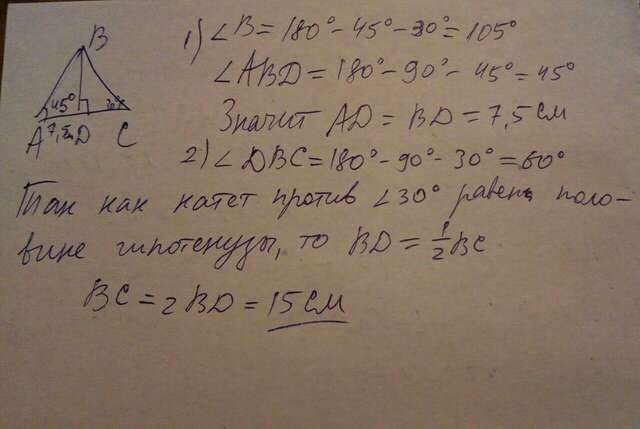 B
45°
30°
A 7,5 D C
1) ∠B = 180° - 45° - 30° = 105°
∠ABD = 180° - 90° - 45° = 45°
Значит AD = BD = 7,5 см
2) ∠DBC = 180° - 90° - 30° = 60°
Так как катет против ∠30° равен поло-
вине гипотенузы, то BD = 1/2 BC
BC = 2BD = 15 см